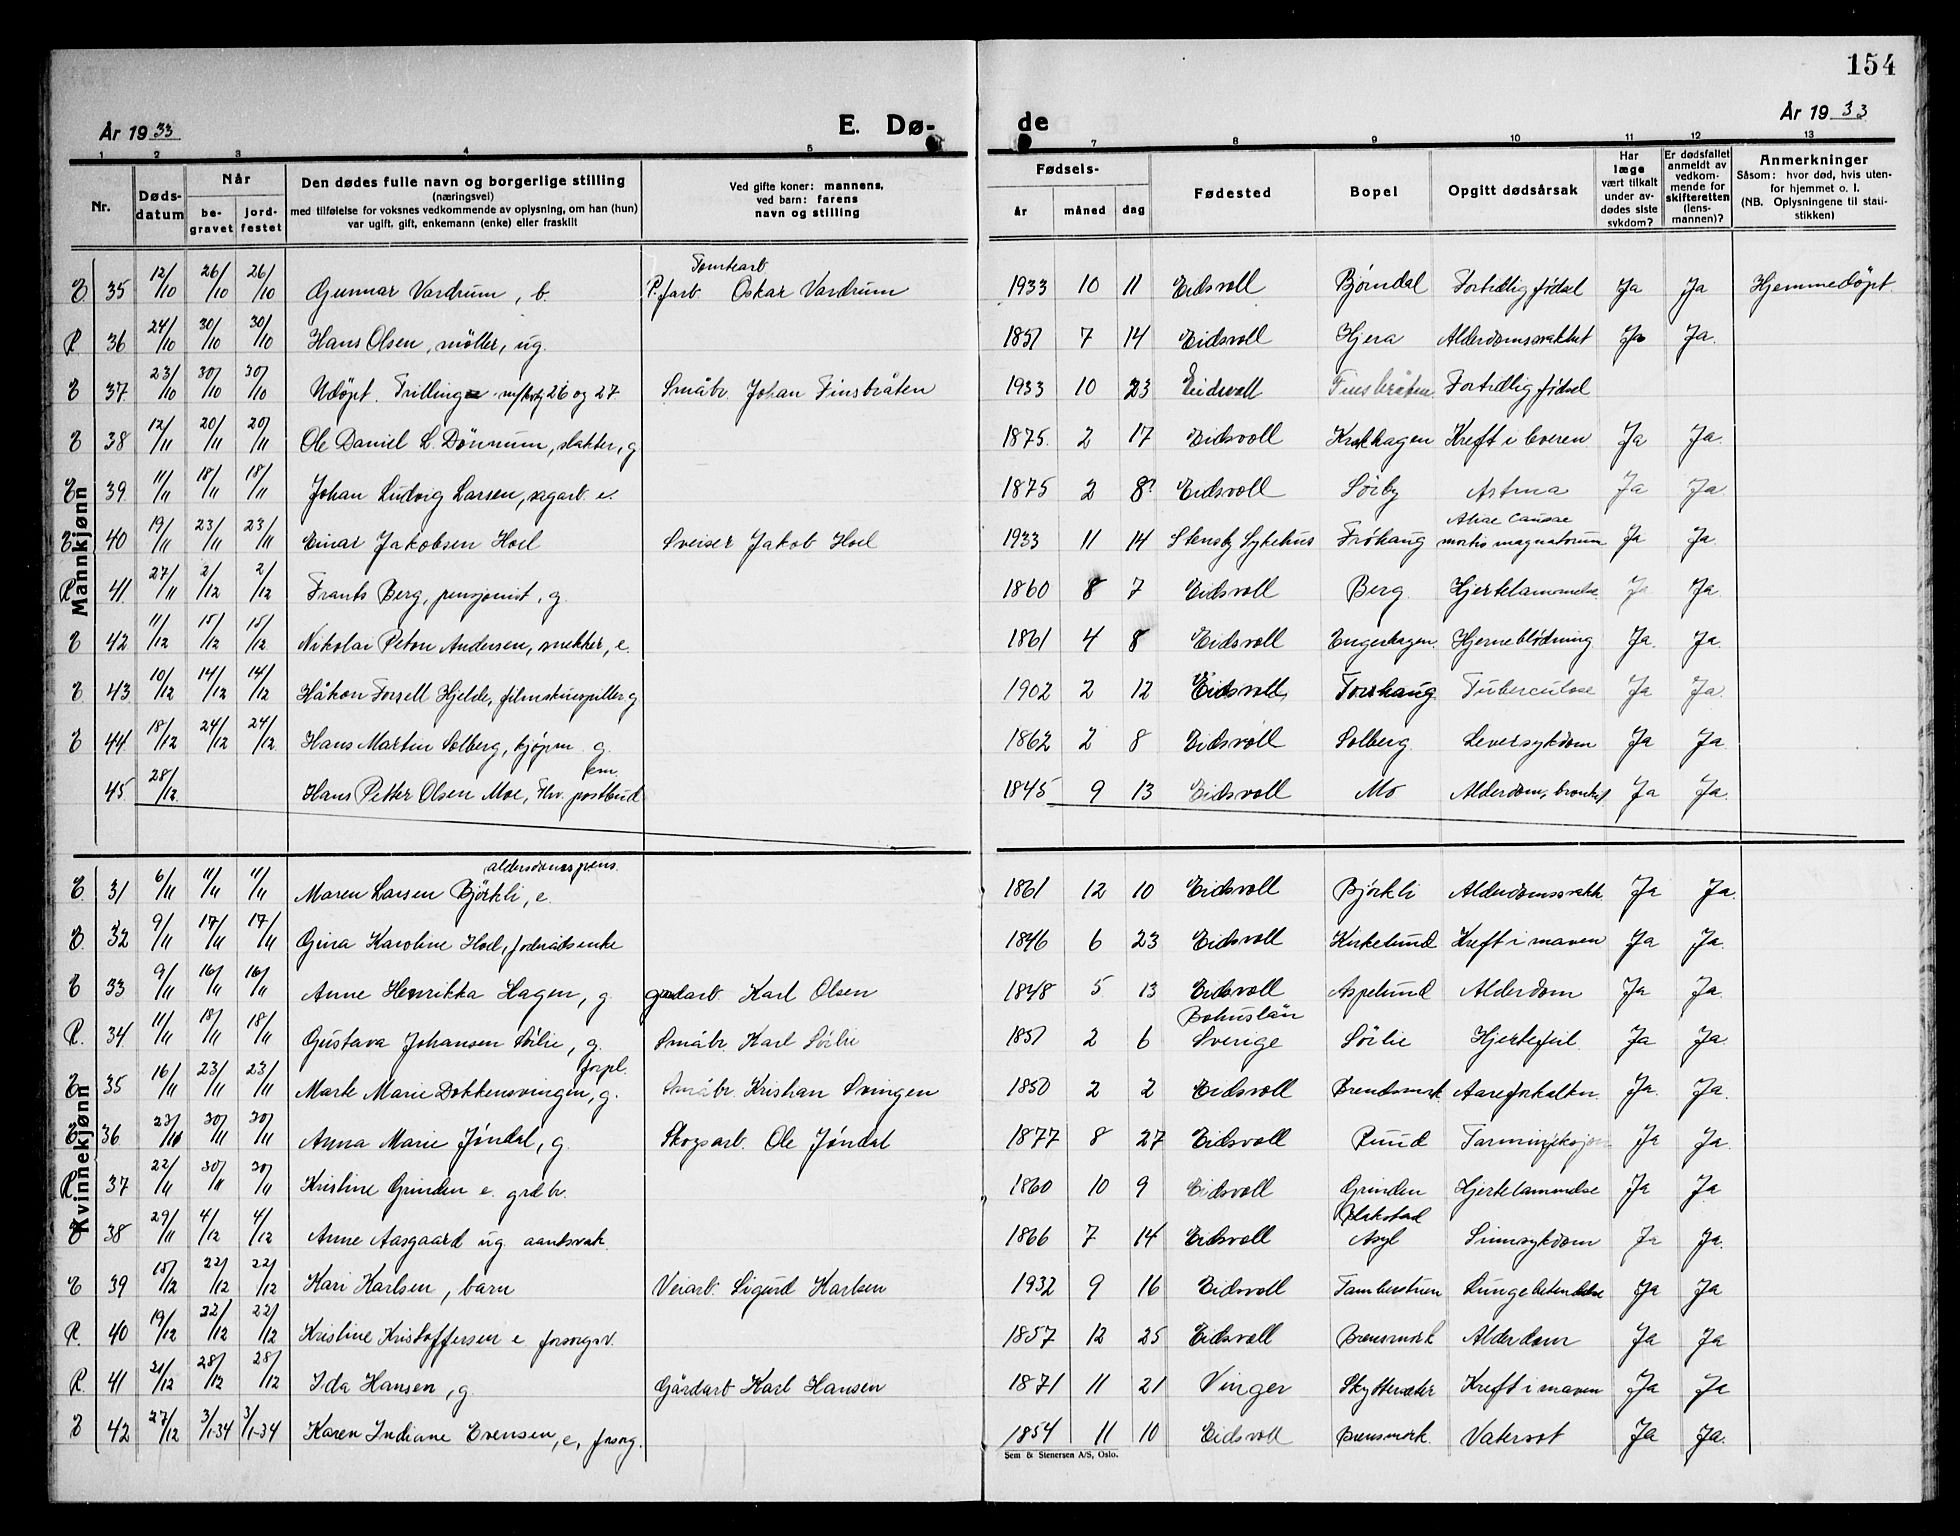 154
År 1933 E. Dø- de År 1933
1 2 3 4 5 7 8 9 10 11 12 13
Nr. Døds-datum Når be-gravet jord-festet Den dødes fulle navn og borgerlige stilling (næringsvei) med tilføielse for voksnes vedkommende av oplysning, om han (hun) var ugift, gift, enkemann (enke) eller fraskilt Ved gifte koner: mannens, ved barn: farens navn og stilling Fødsels- år måned dag Fødested Bopel Opgitt dødsårsak Har læge vært tilkalt under av-dødes siste sykdom? Er dødsfallet anmeldt av vedkom-mende for skifteretten (lens-mannen)? Anmerkninger Såsom: hvor død, hvis uten-for hjemmet o. l. (NB. Oplysningene til stati-stikken)
Mannkjønn
Tomtearb
E 35 12/10 26/10 26/10 Gunnar Vardrum, b. P. farb Oskar Vardrum 1933 10 11 Eidsvoll Bjørndal Fortidlig fødsel Ja Ja Hjemmedøpt
R 36 24/10 30/10 30/10 Hans Olsen, møller, ug. 1851 7 14 Eidsvoll Hjera Alderdomssvakhet Ja Ja.
E 37 23/10 30/10 30/10 Udøpt. Trilling 26 og 27 Småbr. Johan Finsbråten 1933 10 23 Eidsvoll Finsbråten Fortidlig fødsel
E 38 12/11 20/11 20/11 Ole Daniel L. Dønnum, slakter, g 1875. 2 17 Eidsvoll Krokhagen Kreft i leveren Ja Ja.
E 39 11/11 18/11 18/11 Johan Ludvig Larsen, sagarb. e. 1875 2 8? Eidsvoll Sørby Astma Ja Ja
Aliae causae
E 40 19/11 23/11 23/11 Einar Jakobsen Hoel Sveiser Jakob Hoel 1933 11 14 Stensby Sykehus Frøhaug mortis magnatorum Ja Ja.
R 41. 27/11 2/12 2/12 Frants Berg, pensjonist, g. 1860 8 7 Eidsvoll Berg. Hjertelammelse Ja Ja.
E 42 11/12 15/12 15/12 Nikolai Peton Andersen, snekker, e. 1861 4 8 Eidsvoll Engerhagen. Hjerneblødning Ja. Ja.
E 43. 10/12 14/12 14/12 Håkon Forsell Hjelde, filmskuespiller g 1902 2 12 Eidsvoll, Forshaug Tuberculose Ja Ja.
E 44. 18/12 24/12 24/12 Hans Martin Solberg, kjøpm g. 1862 2 8 Eidsvoll Solberg. Leversykdom Ja Ja
em.
45. 28/12. Hans Petter Olsen Moe, Fhv. postbud 1845 9 13 Eidsvoll Mo Alderdom, bronkit Ja Ja.
Kvinnekjønn
alderdomspens.
E. 31 6/11 11/11 11/11 Maren Larsen Bjørkli, e. 1861 12 10 Eidsvoll Bjørkli Alderdomssvakh. Ja Ja.
E. 32 9/11 17/11 17/11 Gina Karoline Hoel, foderådsenke 1846 6 23 Eidsvoll Kirkelund Kreft i maven Ja Ja.
E 33 9/11 16/11 16/11 Anne Henrikka Hagen, g. gårdarb. Karl Olsen 1848 5 13 Eidsvoll Aspelund Alderdom Ja Ja.
Bohuslän
R. 34. 11/11 18/11 18/11 Gustava Johansen Sørlie, g. Småbr. Karl Sørlie 1851 2 6 Sverige Sørlie Hjertefeil. Ja Ja.
forpl.
E 35 16/11 23/11 23/11 Marte Marie Dokkensvingen, g. Småbr. Kristian Svingen 1850 2 2 Eidsvoll Brendsmork Aareforkalkn. Ja. Ja.
E 36 23/11 30/11 30/11 Anna Marie Jøndal, g. Skogsarb. Ole Jøndal 1877 8 27 Eidsvoll Ruud Tarminfeksjon Ja Ja.
R 37 22/11 30/11 30/11 Kristine Grinden e. grdbr. 1860 10 9 Eidsvoll Grinden Hjertelammelse Ja Ja
Blakstad
E 38 29/11 4/12 4/12 Anne Aasgaard ug. aandsvak. 1866 7 14 Eidsvoll Asyl Sinnsykdom Ja Ja.
E 39 15/12 22/12 22/12 Kari Karlsen, barn Veiarb. Sigurd Karlsen 1932 9 16 Eidsvoll Tamburstuen Lungebetendelse Ja Ja
R. 40 19/12 22/12 22/12 Kristine Kristoffersen e forsorgsv. 1857 12 25 Eidsvoll Brensmork Alderdom Ja Ja
R. 41 21/12 28/12 28/12 Ida Hansen, g. Gårdarb Karl Hansen 1871 11 21 Vinger Skyttersæter Kreft i maven Ja Ja
E 42 27/12 3/1-34 3/1-34 Karen Indiane Evensen, e, forsorg. 1854 11 10 Eidsvoll Brensmork. Vatersot Ja Ja.
Sem & Stenersen A/S, Oslo.